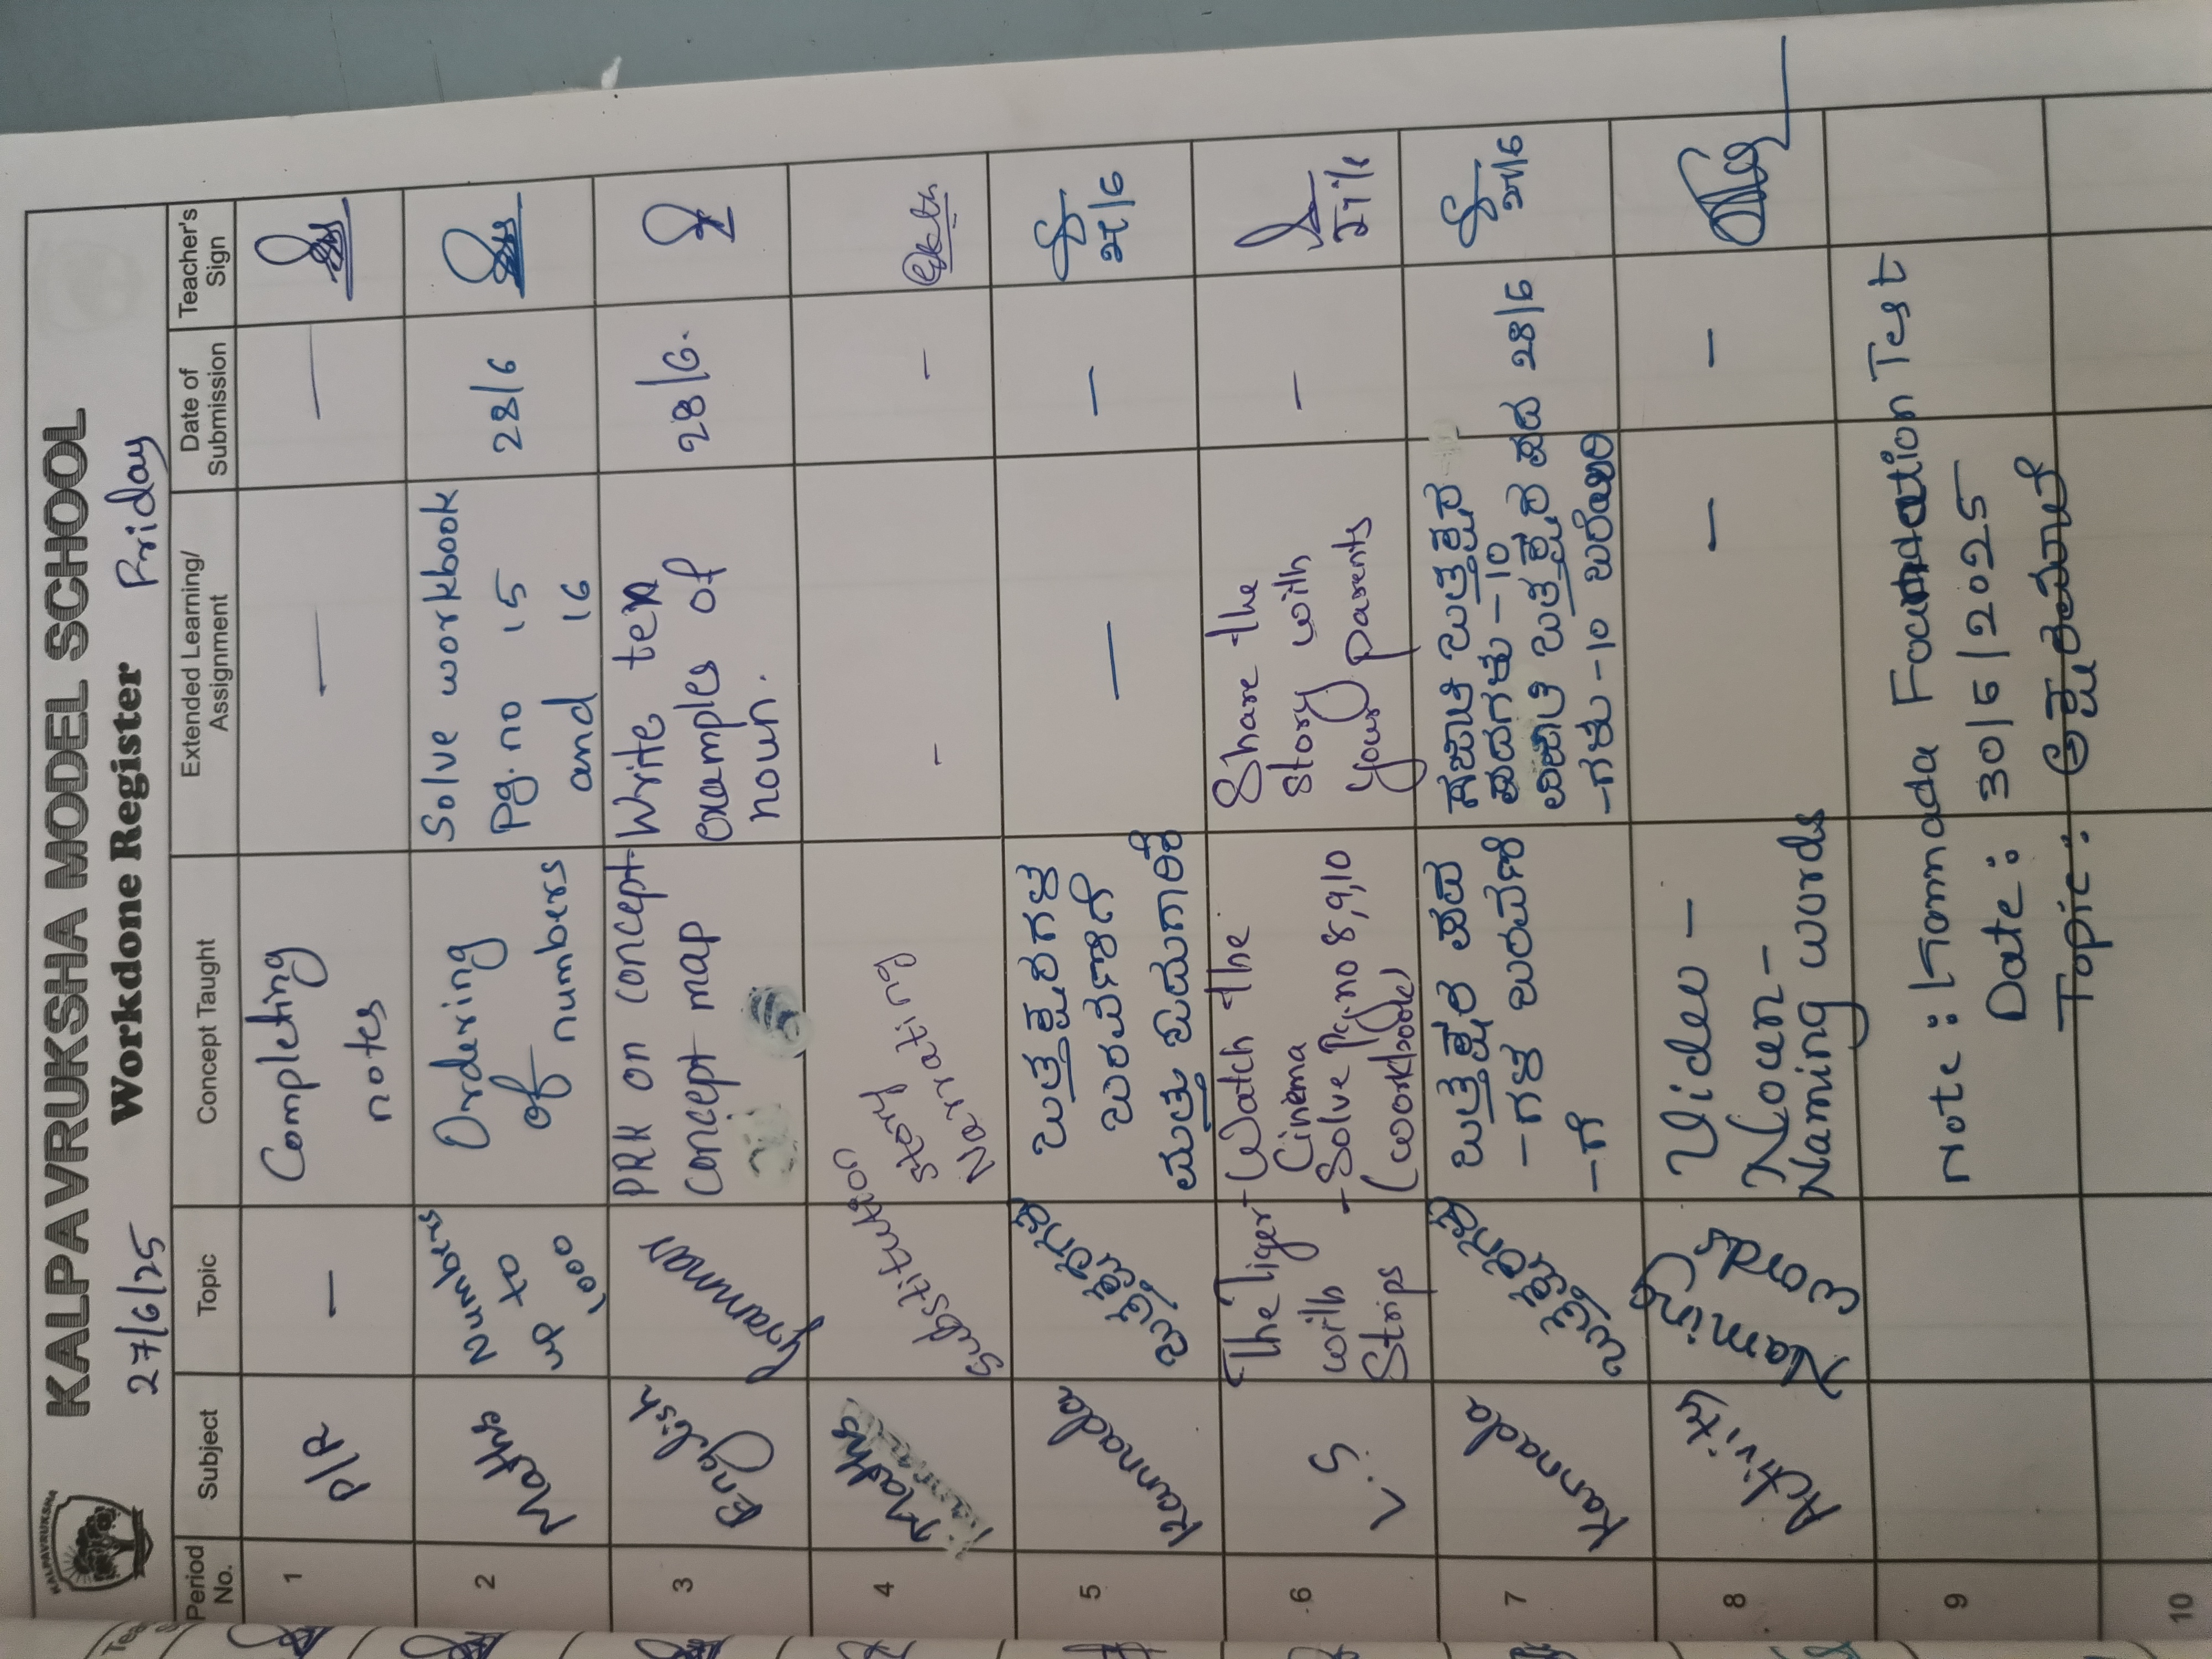 KALPAVRUKSHA
KALPAVRUKSHA MODEL SCHOOL
27/6/25 Workdone Register Friday
Period No. Subject Topic Concept Taught Extended Learning/ Assignment Date of Submission Teacher's Sign
1 P/R — Completing notes — —
2 Maths Numbers up to 1000 Ordering of numbers Solve workbook Pg. no 15 and 16 28/6
3 English Grammar PRH on concept Concept map Write ten examples of noun. 28/6.
4 Maths Substitution Story Narrating - -
5 Kannada ಒತ್ತಕ್ಷರಗಳು ಒತ್ತಕ್ಷರಗಳ ಬರವಣಿಗೆ ಮತ್ತು — — 27/6
6 L.S. The Tiger with Strips - Watch the Cinema - Solve Pg.no 8,9,10 (workbook) Share the story with your parents - 27/6
7 Kannada ಒತ್ತಕ್ಷರಗಳು ಒತ್ತಕ್ಷರ ಪದ -ಗಳ ಬರವಣಿ -ಗೆ ಸಜಾತಿ ಒತ್ತಕ್ಷರ ಪದಗಳು -10 ವಿಜಾತಿ ಒತ್ತಕ್ಷರ ಪದ -ಗಳು -10 ಬರೆಯಿರಿ 28/6 27/6
8 Activity Naming words Video - Noun - Naming words — —
9 Note : Kannada Foundation Test
Date : 30/6/2025
10 Topic :